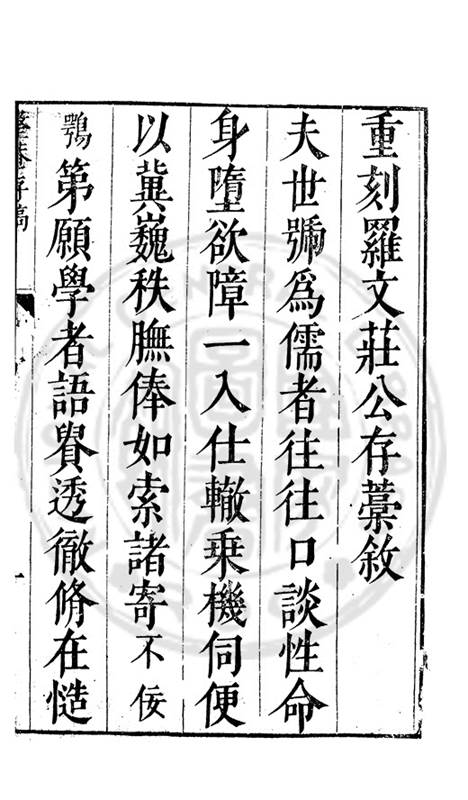 重刻羅文莊公存藁敘
夫世號爲儒者往往口談性命
身墮欲障一入仕轍乗機伺便
以冀巍秩膴俸如索諸寄不佞
鶚第願學者語貴透徹脩在慥
整菴存稿
一